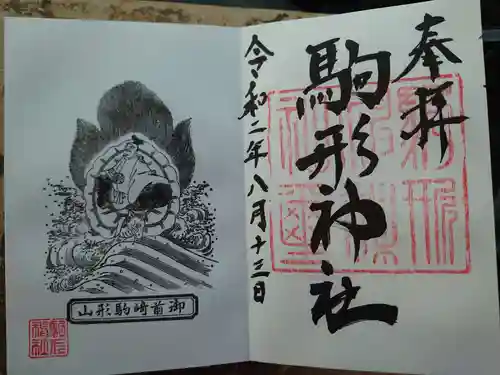 奉拝
駒形神社
令和二年八月十三日
御前崎駒形山
駒形
神社